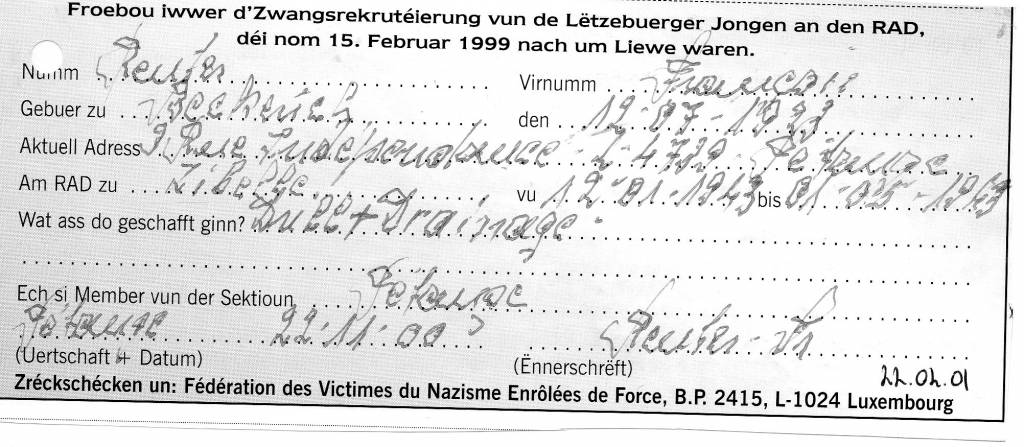 Froebou iwwer d'Zwangsrekrutéierung vun de Lëtzebuerger Jongen an den RAD,
déi nom 15. Februar 1999 nach um Liewe waren.
Numm Reuter Virnumm François
Gebuer zu Beckerich den 12-07-1923
Aktuell Adress 9, Rue L-47 Pétange
Am RAD zu Zibelle vu 12-01-1943 bis 01-05-1943
Wat ass do geschafft ginn? Drill + Drainage
Ech si Member vun der Sektioun Petange
Pétange 22-11-00 Reuter-Fr
(Uertschaft + Datum) (Ënnerschrëft)
22.02.01
Zréckschécken un: Fédération des Victimes du Nazisme Enrôlées de Force, B.P. 2415, L-1024 Luxembourg